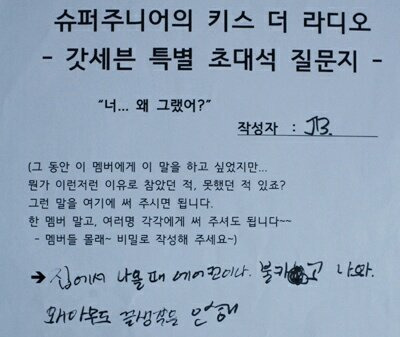 슈퍼주니어의 키스 더 라디오
- 갓세븐 특별 초대석 질문지 -
“너... 왜 그랬어?”
작성자 : JB.
(그 동안 이 멤버에게 이 말을 하고 싶었지만...
뭔가 이런저런 이유로 참았던 적, 못했던 적 있죠?
그런 말을 여기에 써 주시면 됩니다.
한 멤버 말고, 여러명 각각에게 써 주셔도 됩니다~~
- 멤버들 몰래~ 비밀로 작성해 주세요~)
➔ 집에서 나올 때 에어컨이나. 불키고 나와.
왜 아무도 끌생각을 안해